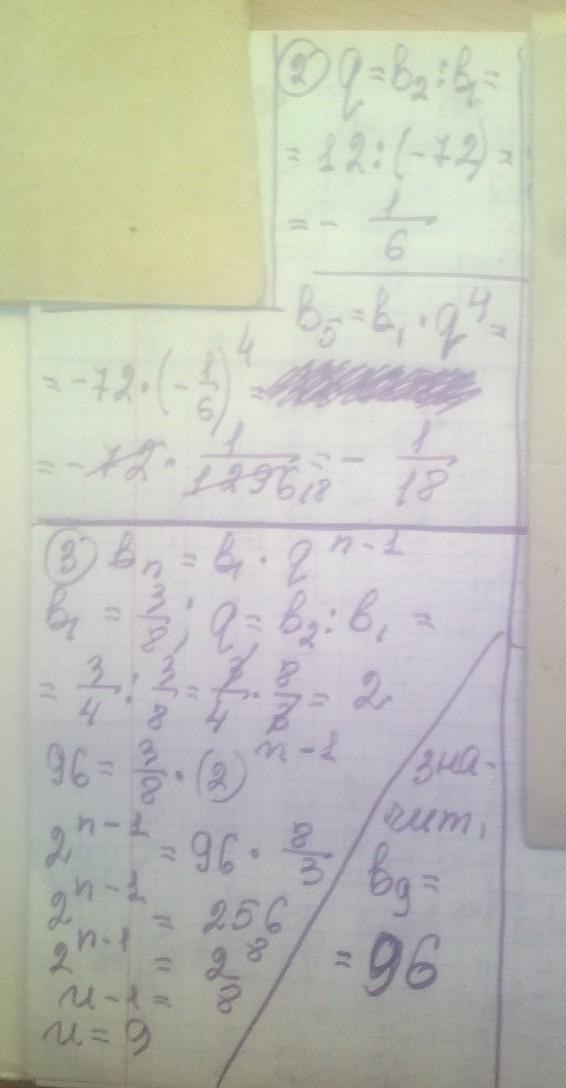 ② q = b₂ : b₁ =
= 12 : (-72) =
= - 1/6
b₅ = b₁ · q⁴ =
= -72 · (-1/6)⁴ =
= -72 · 1/1296₁₈ = - 1/18
③ bₙ = b₁ · qⁿ⁻¹
b₁ = 3/8 ; q = b₂ : b₁ =
= 3/4 : 3/8 = 3/4 · 8/3 = 2
96 = 3/8 · (2)ⁿ⁻¹
2ⁿ⁻¹ = 96 · 8/3
2ⁿ⁻¹ = 256
2ⁿ⁻¹ = 2⁸
n-1 = 8
n = 9
зна-
чит,
b₉ =
= 96